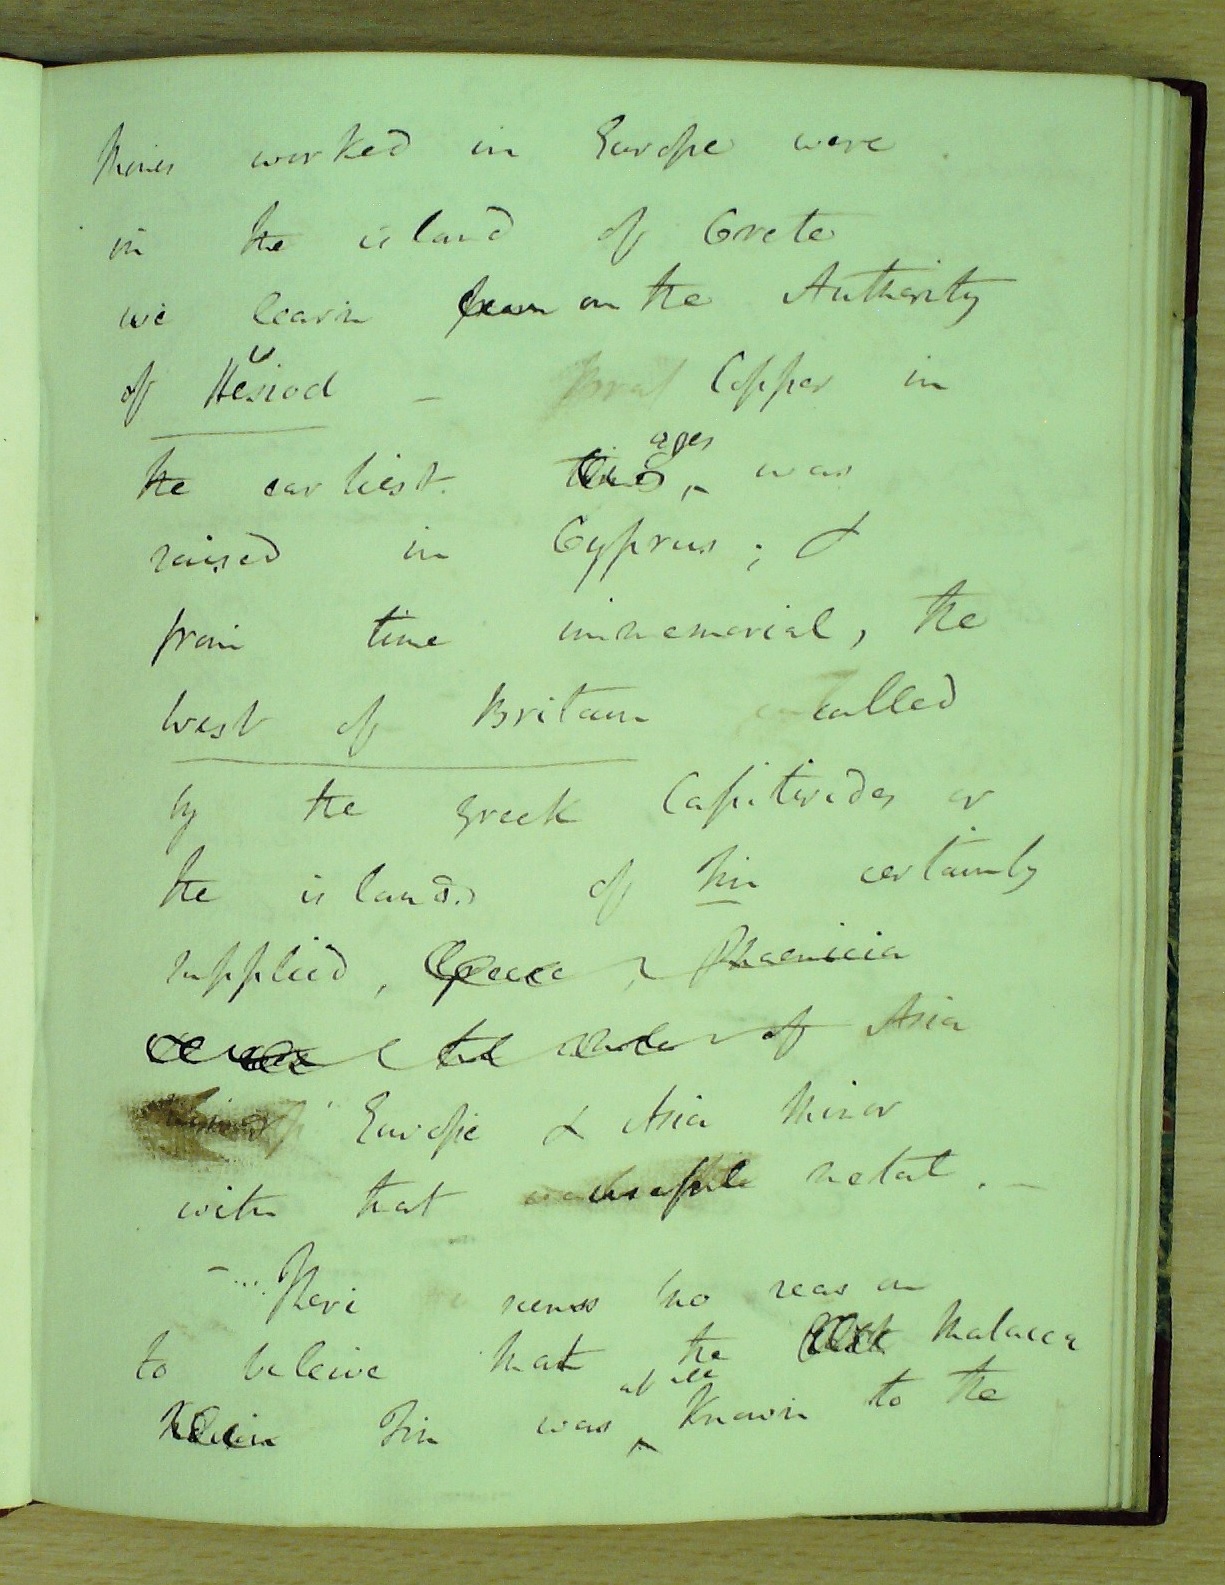 Mines worked in Europe were
in the island of Crete
we learn on the Authority
of Hesiod – Copper in
the earliest ages was
raised in Cyprus; &
from time immemorial, the
West of Britain called
by the Greek Cassiterides or
the islands of Tin certainly
supplied, Greece, Phaenicia
of Asia
Minor Europe & Asia Minor
with that usefull metal. –
– ... There seems no reason
to beleive that the Malacca
Tin was at all known to the